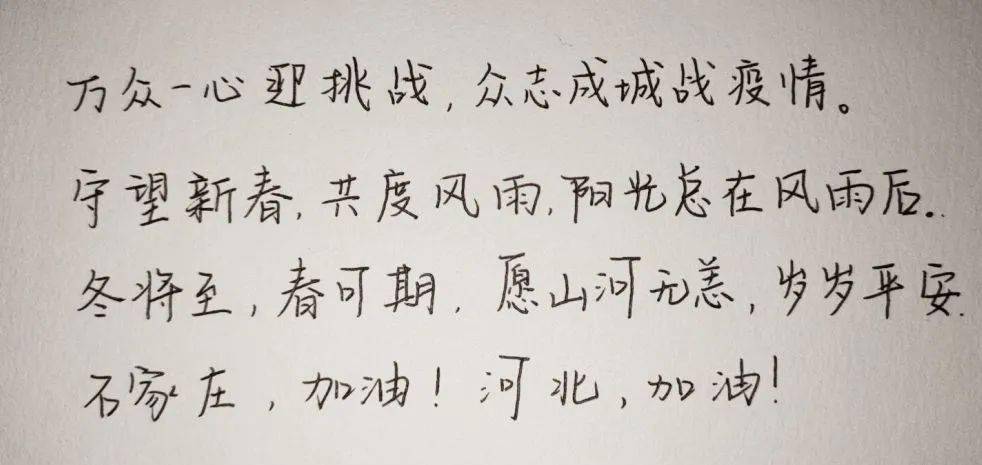 万众一心迎挑战,众志成城战疫情。
守望新春,共度风雨,阳光总在风雨后..
冬将至,春可期.愿山河无恙,岁岁平安.
石家庄,加油!河北,加油!